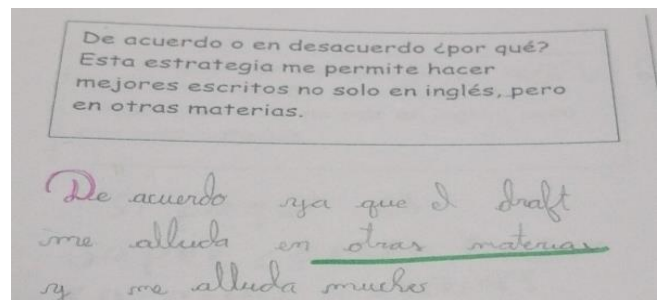 De acuerdo o en desacuerdo ¿por qué?
Esta estrategia me permite hacer
mejores escritos no solo en inglés, pero
en otras materias.
De acuerdo ya que el draft
me alluda en otras materias
y me alluda muches